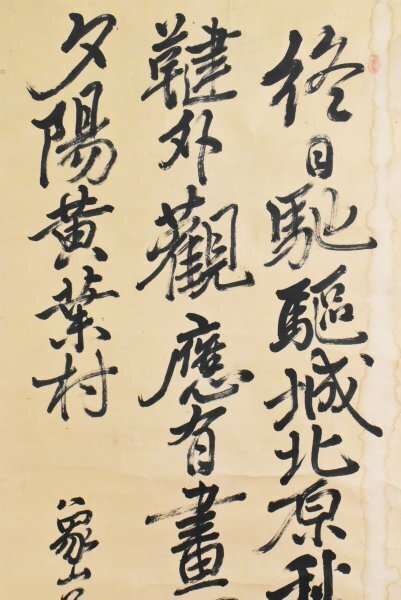 終日馳驅城北原秋
鞬外觀應有畫
夕陽黃葉村
象山